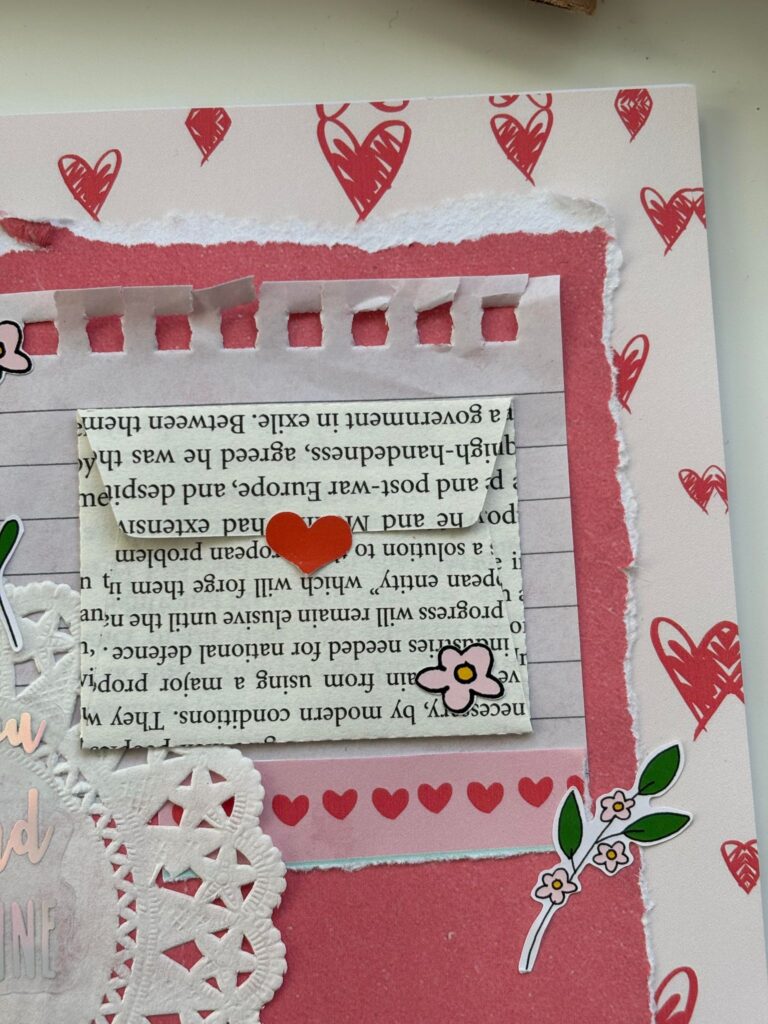 necessary, by modern conditions. They
from using a major
industries needed for national defence.
progress will remain elusive until the
entity” which will forge them
a solution to problem
he and had
and post-war Europe, and
high-handedness, agreed he was
a government in exile. Between them